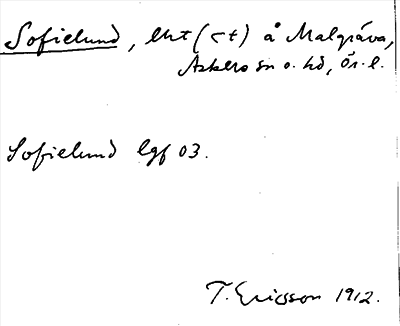 Sofielund, lht (<t) å Malgräva,
Askers sn o. hd, Ör. l.
Sofielund lgf 03.
T. Ericsson 1912.